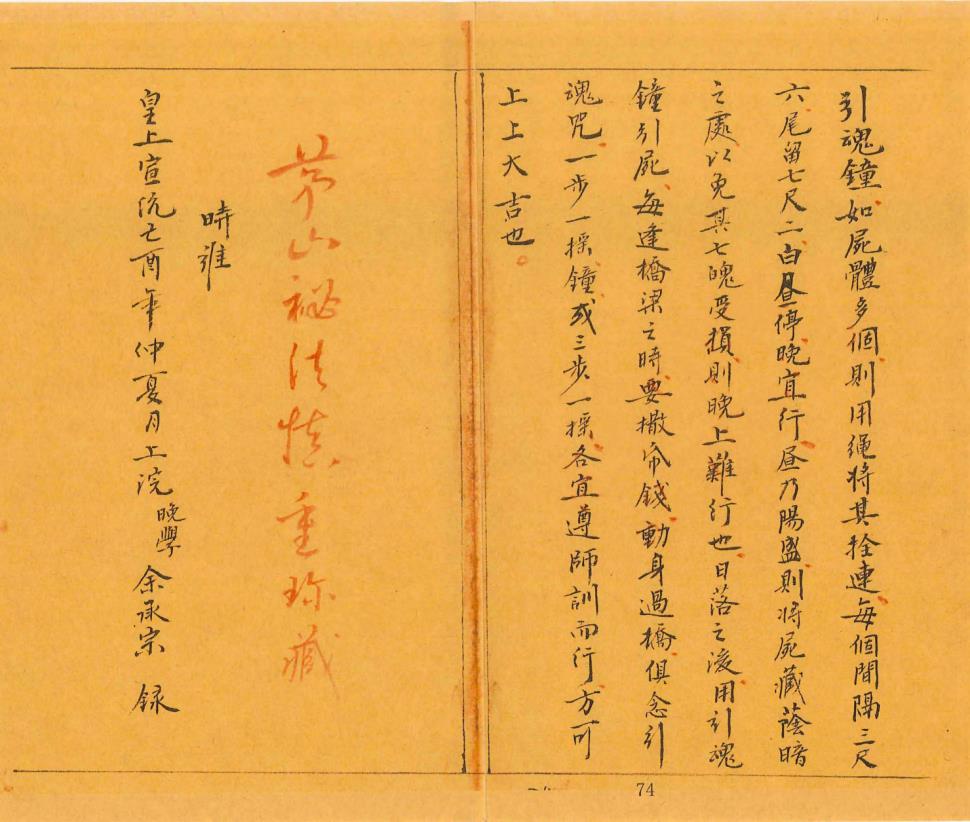 引魂鐘如屍體多個則用繩將其拴連每個間隔三尺
六尾留七尺二白晝停晚宜行昼乃陽盛則將屍藏蔭暗
之處以免其七魄受損則晚上難行也日落之後用引魂
鐘引屍每逢橋梁之時要撒帋錢動身過橋俱念引
魂咒一步一搖鐘或三步一搖各宜遵師訓而行方可
上上大吉也。
茅山秘法慎重珍藏
時維
皇上宣统己酉年仲夏月上浣晚學余承宗 录
74